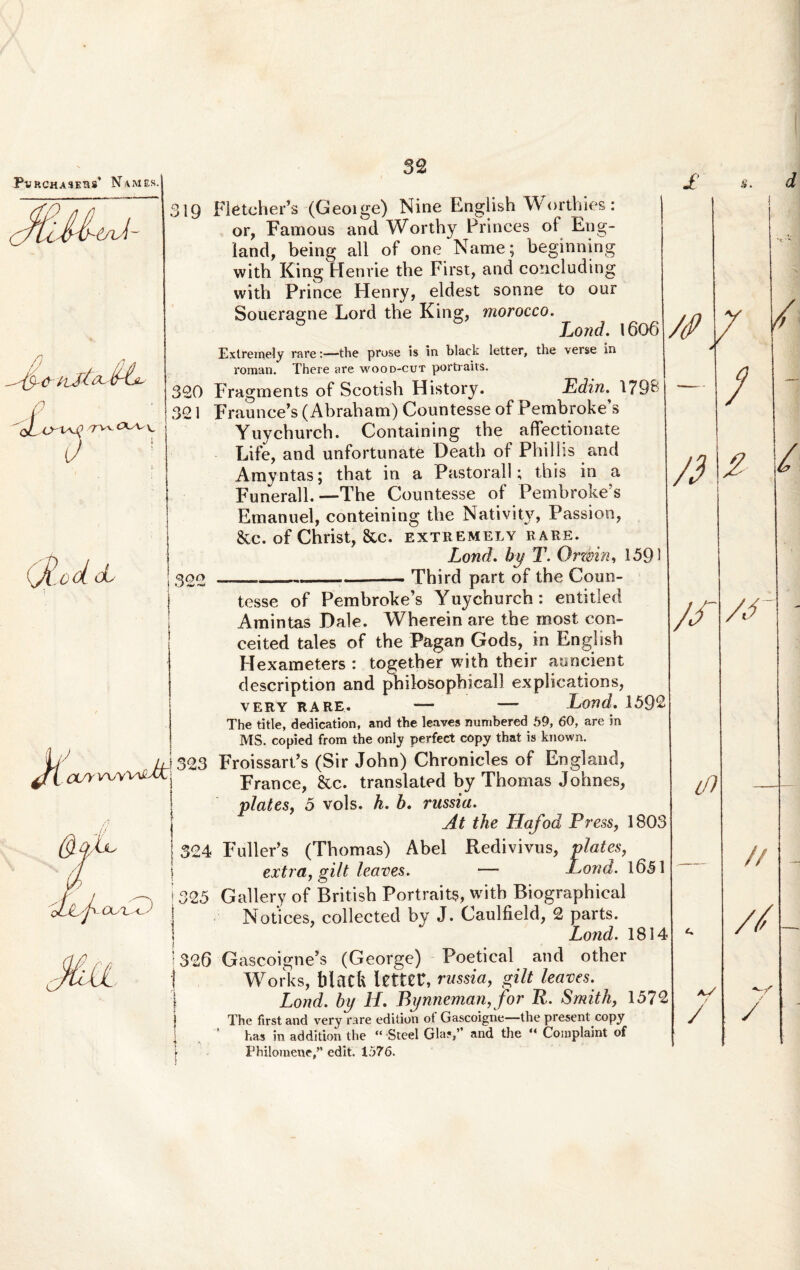 32
PURCHASERS' NAMES.
£ s. d
Hibbert
319 Fletcher's (George) Nine English Worthies:
or, Famous and Worthy Princes of Eng-
land, being all of one Name; beginning
with King Henrie the First, and concluding
with Prince Henry, eldest sonne to our
Soueragne Lord the King, morocco.
Lond. 1606
Extremely rare:—the prose is in black letter, the verse in
roman. There are WOOD-CUT portraits.
Constable
320 Fragments of Scotish History. Edin. 1798
Longman
321 Fraunce's (Abraham) Countesse of Pembroke's
Yuychurch. Containing the affectionate
Life, and unfortunate Death of Phillis and
Amyntas; that in a Pastorall; this in a
Funerall.—The Countesse of Pembroke's
Emanuel, conteining the Nativity, Passion,
&c. of Christ, &c. EXTREMELY RARE.
Lond. by T. Orwin, 1591
13 2
Rodd
322 ———— Third part of the Coun-
tesse of Pembroke's Yuychurch: entitled
Amintas Dale. Wherein are the most con-
ceited tales of the Pagan Gods, in English
Hexameters : together with their auncient
description and philosophicall explications,
VERY RARE. — — Lond. 1592
15 15
The title, dedication, and the leaves numbered 59, 60, are in
MS. copied from the only perfect copy that is known.
323 Froissart's (Sir John) Chronicles of England,
France, &c. translated by Thomas Johnes,
plates, 5 vols. h. b. russia.
At the Hafod Press, 1803
324 Fuller's (Thomas) Abel Redivivus, plates,
extra, gilt leaves. — Lond. 1651
11
325 Gallery of British Portraits, with Biographical
Notices, collected by J. Caulfield, 2 parts.
Lond. 1814
Hill
326 Gascoigne's (George) Poetical and other
Works, black letter, russia, gilt leaves.
Lond. by H. Bynneman, for R. Smith, 1572
7 7
The first and very rare edition of Gascoigne—the present copy
has in addition the "Steel Glas," and the "Complaint of
Philomene," edit. 1576.